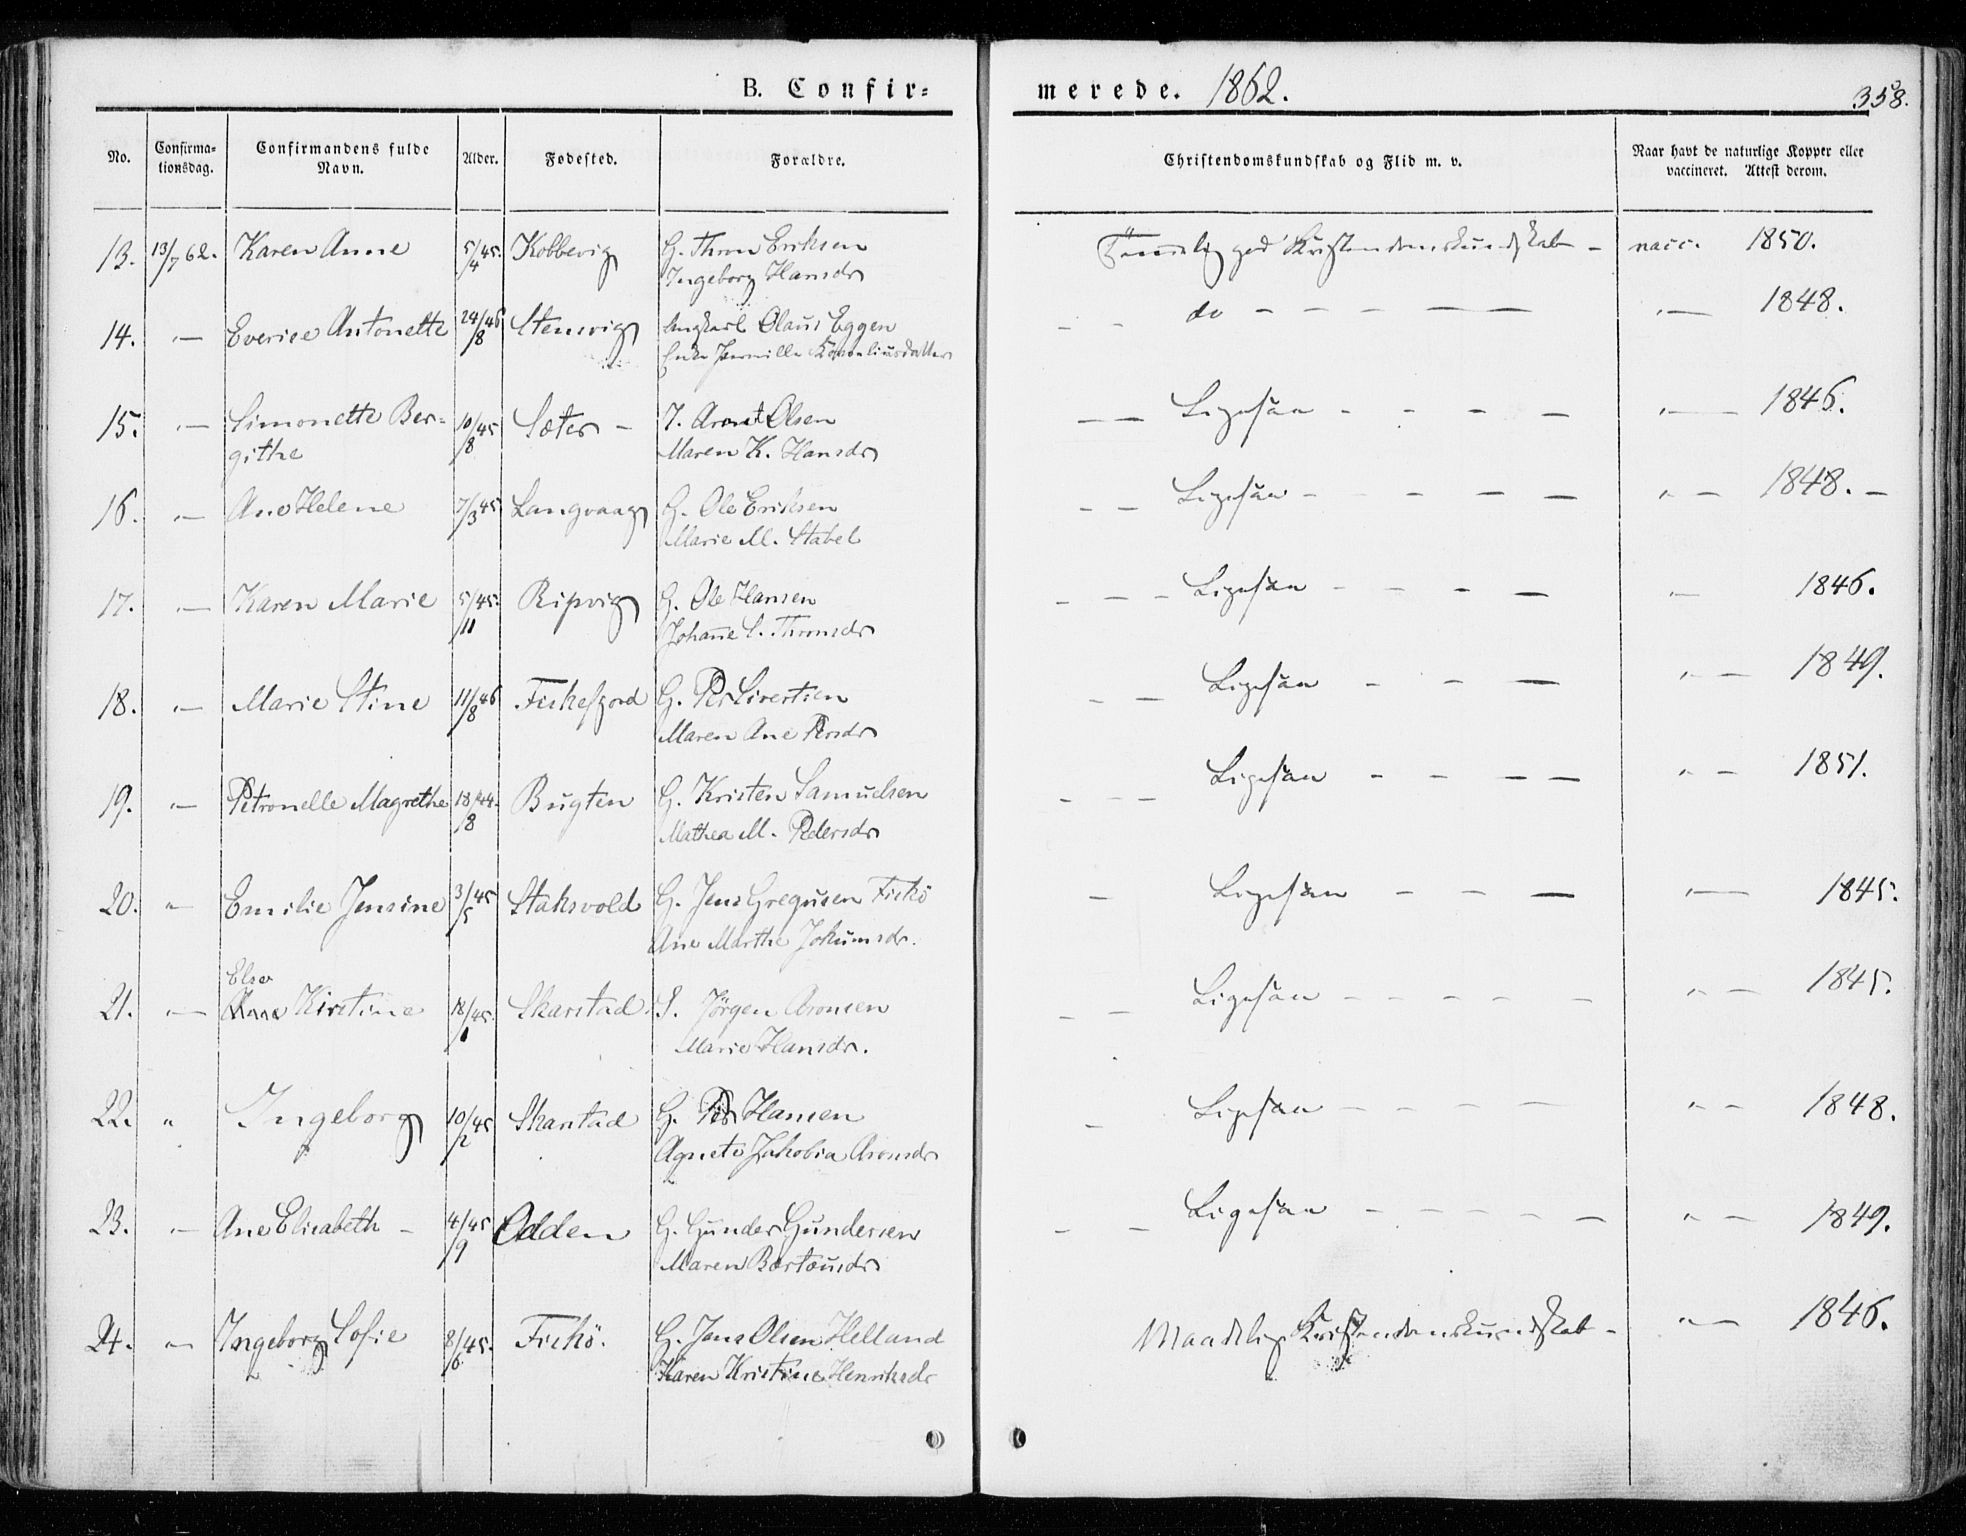 B. Confir=
merede. 1862.
358.
No.
Confirma-
tionsdag.
Confirmandens fulde
Navn.
Alder.
Fødested.
Forældre.
Christendomskundskab og Flid m. v.
Naar havt de naturlige Kopper eller
vaccineret. Attest derom.
13. 13/7 62. Karen Anne 5/4 45. Kobbevig G. Thron Eriksen
Ingeborg Hansdr
Temmelig god Kristendomskundskab - vacc. 1850.
14. " — Everice Antonette 24/8 46 Stensvig Ungkarl Olaus Eggen
Enke Pernille Korneliusdatter
— — do - - - — — " — 1848.
15. " — Simonette Ber=
githe 10/8 45 Sæter - I. Arnt Olsen
Maren K. Hansdr
— — Ligesaa - - - — " — 1846.
16. " — Ane Helene 7/3 45 Langvaag G. Ole Eriksen
Marie M. Stabel
— — Ligesaa - - - — — " — 1848. —
17. " — Karen Marie 5/11 45. Ripvig G. Ole Hansen
Johanne S. Thronsdr
— — — Ligesaa - - - — " — 1846.
18. " — Marie Stine 11/8 46 Fiskefjord G. Per Sivertsen
Maren Ane Persdr
— — Ligesaa - - — " — 1849.
19. " — Petronelle Magrethe 18/8 44. Bugten G. Kristen Samuelsen
Mathea M. Pedersdr
— — — Ligesaa - - — — " — 1851.
20. " Emilie Jensine 3/5 45 Staksvold G. Jens Gregusen Fiskö
Ane Marthe Jokumsdr.
— Ligesaa - - — " — 1845.
Else
21. " — Kirstine 18/1 45. Skarstad I. Jörgen Aronsen
Marie Hansdr.
— — Ligesaa - - - - - " — 1845.
22. " Ingeborg 10/2 45 Skarstad G. Per Hansen
Agnete Jakobia Aronsdr
— Ligesaa - - - - " — 1848.
23. " — Ane Elisabeth - 4/9 45 Odden G. Gunder Gundersen
Maren Bertæusdr
— — Ligesaa - - - - - " — 1849.
24. " — Ingeborg Sofie 8/6 45. Fiskö. G. Jens Olsen Helland
Karen Kristine Henriksdr
Maadelig Kristendomskundskab - " — 1846.